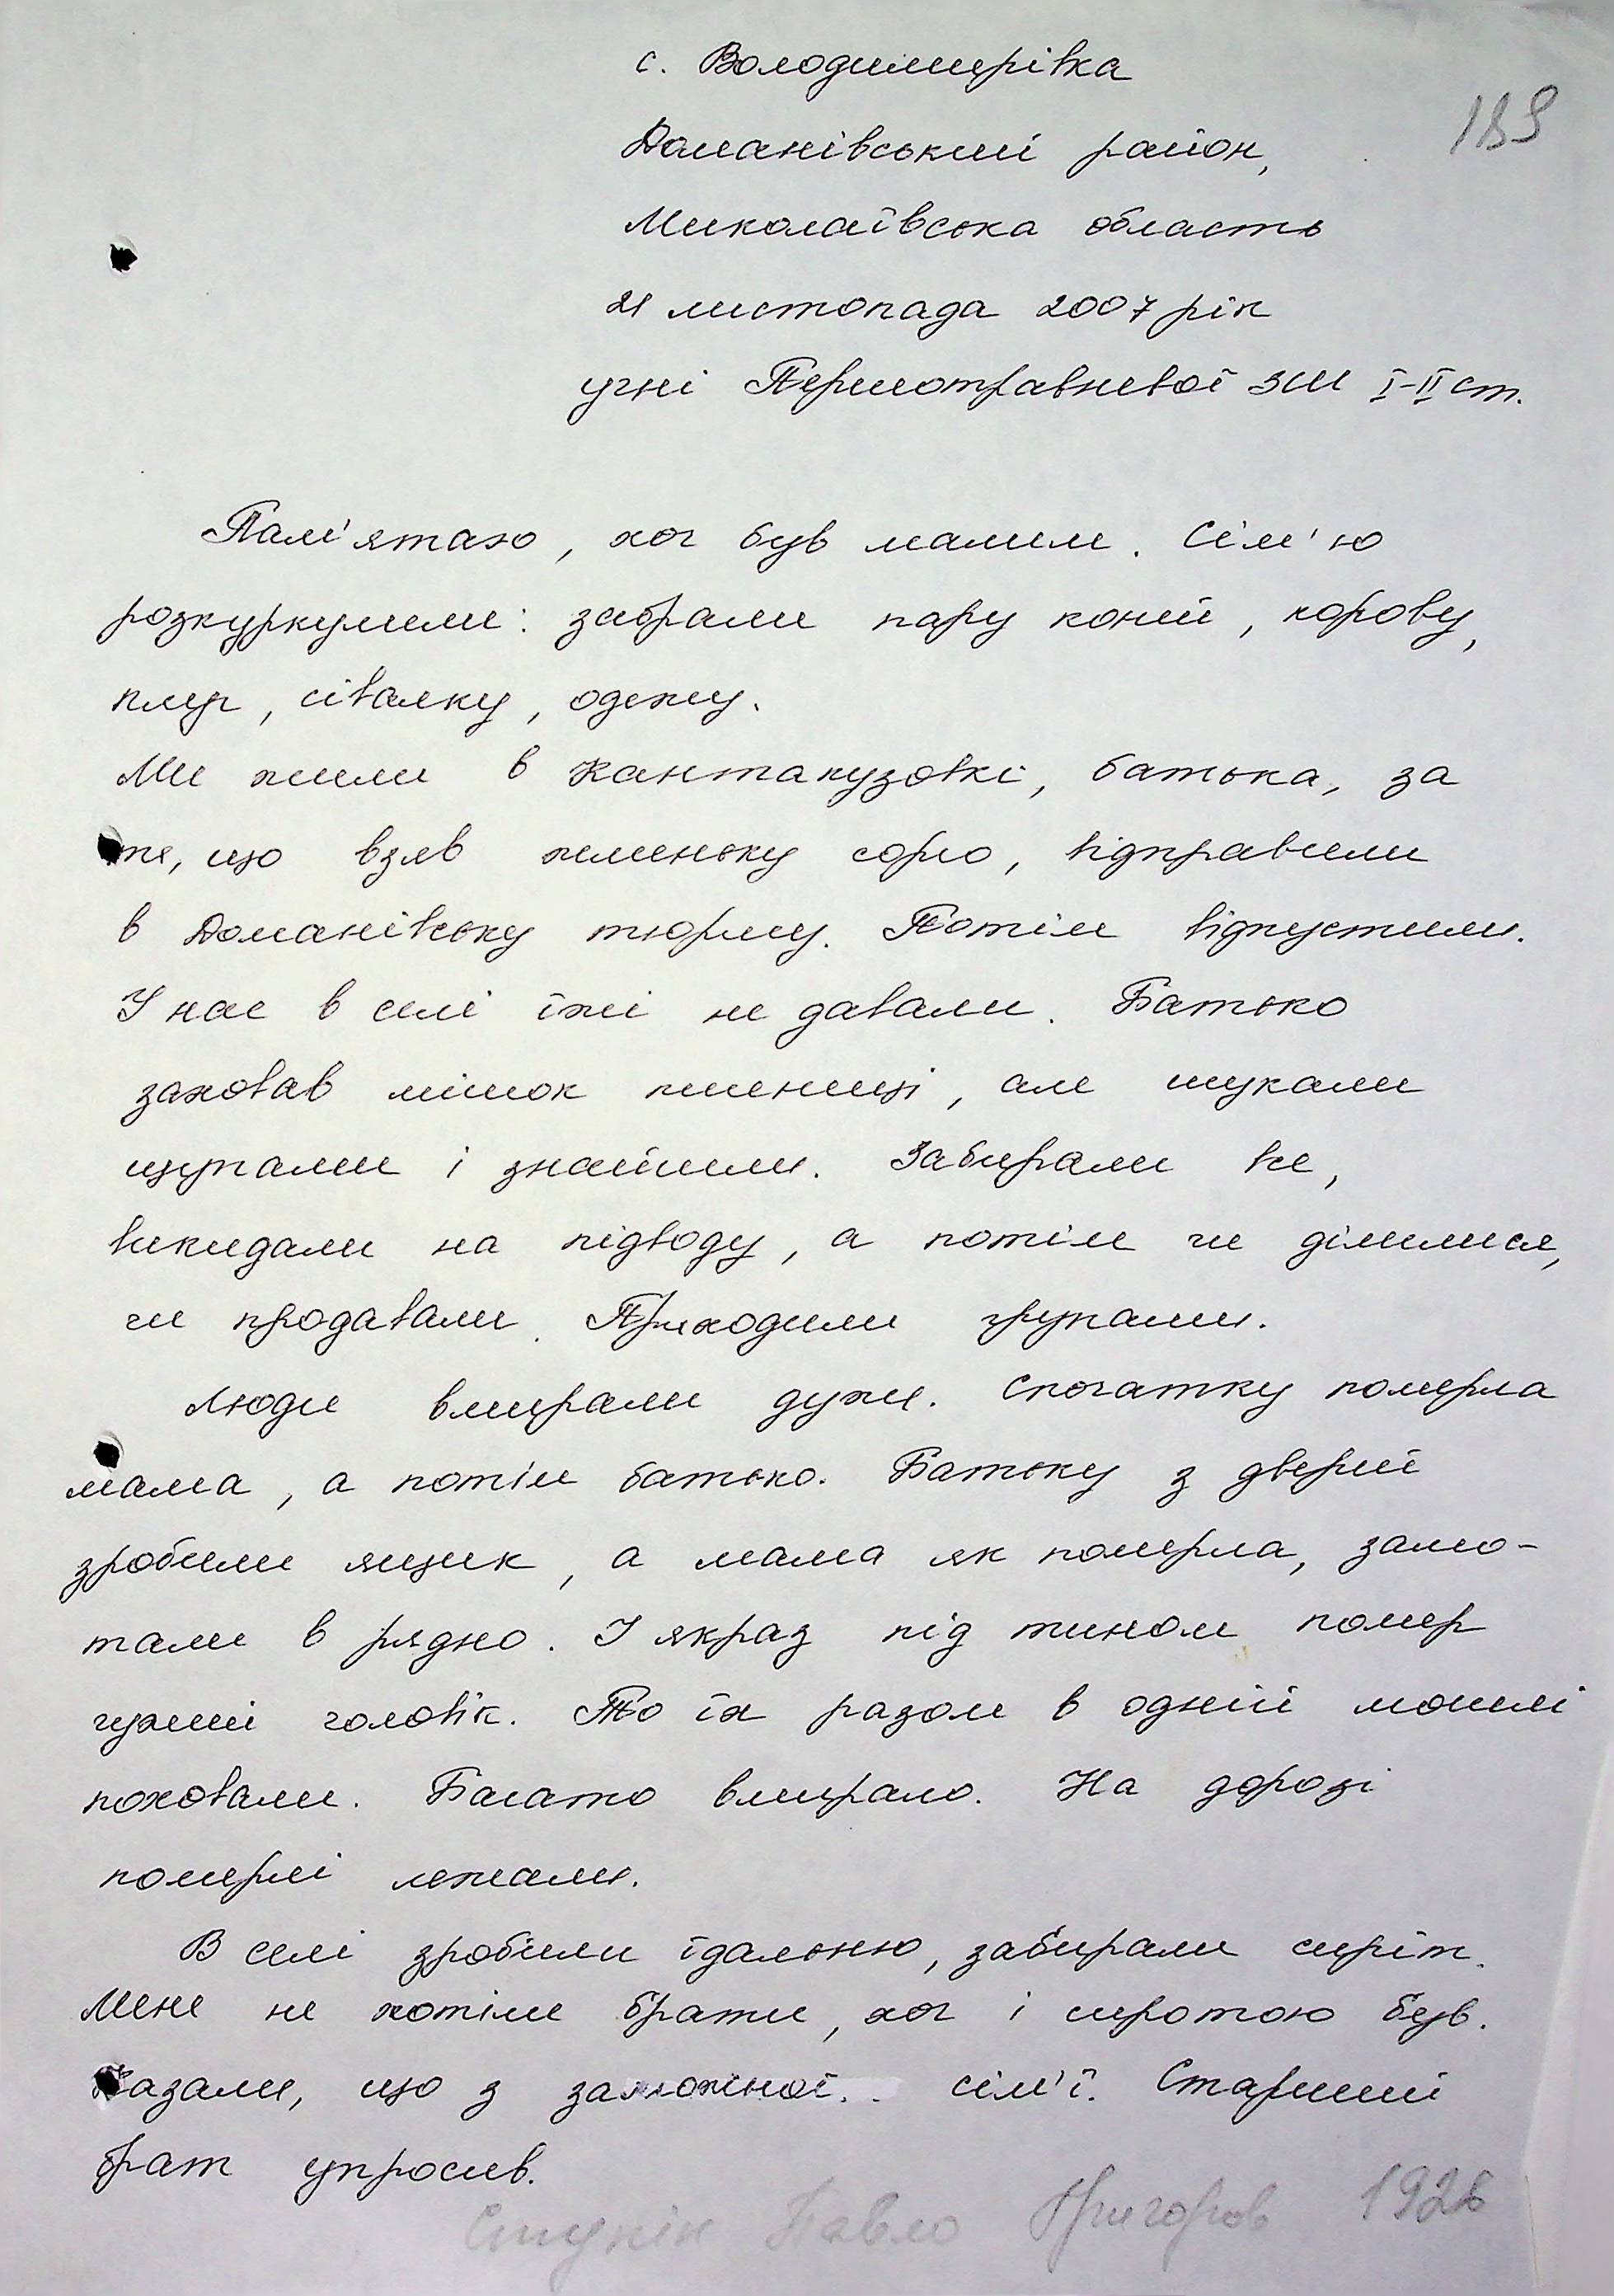 с. Володимирівка
189
Доманівський район,
Миколаївська область
21 листопада 2007 рік
учні Першотравневої ЗШ І-ІІ ст.
Пам'ятаю, хоч був малим. Сім'ю
розкуркулили: забрали пару коней, корову,
плуг, сівалку, одежу.
Ми жили в Кантакузовкі, батька, за
те, що взяв жменьку сорго, відправили
в Доманівську тюрму. Потім відпустили.
У нас в селі їжі не давали. Батько
заховав мішок пшениці, але шукали
щупами і знайшли. Забирали все,
викидали на підводу, а потім чи ділилися,
чи продавали. Приходили групами.
Люди вмирали дуже. Спочатку померла
мама, а потім батько. Батьку з дверей
зробили ящик, а мама як померла, замо-
тали в рядно. І якраз під тином помер
чужий чоловік. То їх разом в одній могилі
поховали. Багато вмирало. На дорозі
померлі лежали.
В селі зробили їдальню, забирали сиріт.
Мене не хотіли брати, хоч і сиротою був.
Казали, що з заможної.. сім'ї. Старший
брат упросив.
Ступік Павло Григоров 1926